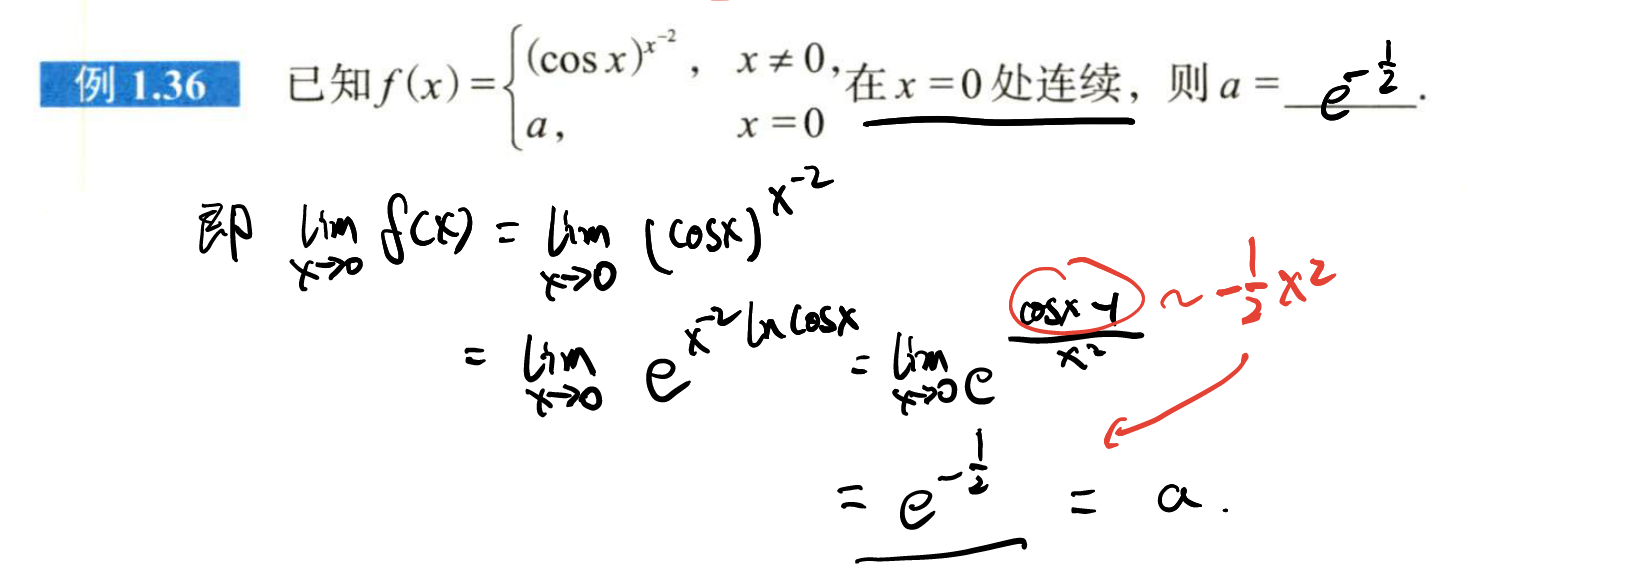 例 1.36 已知 f(x) = { (cos x)^{x^{-2}}, x ≠ 0, a, x = 0 在 x = 0 处连续，则 a = e^{-1/2}.
即 lim_{x→0} f(x) = lim_{x→0} (cosx)^{x^{-2}}
= lim_{x→0} e^{x^{-2} ln cosx} = lim_{x→0} e^{(cosx-1)/x^2} ~ -1/2 x^2
= e^{-1/2} = a.